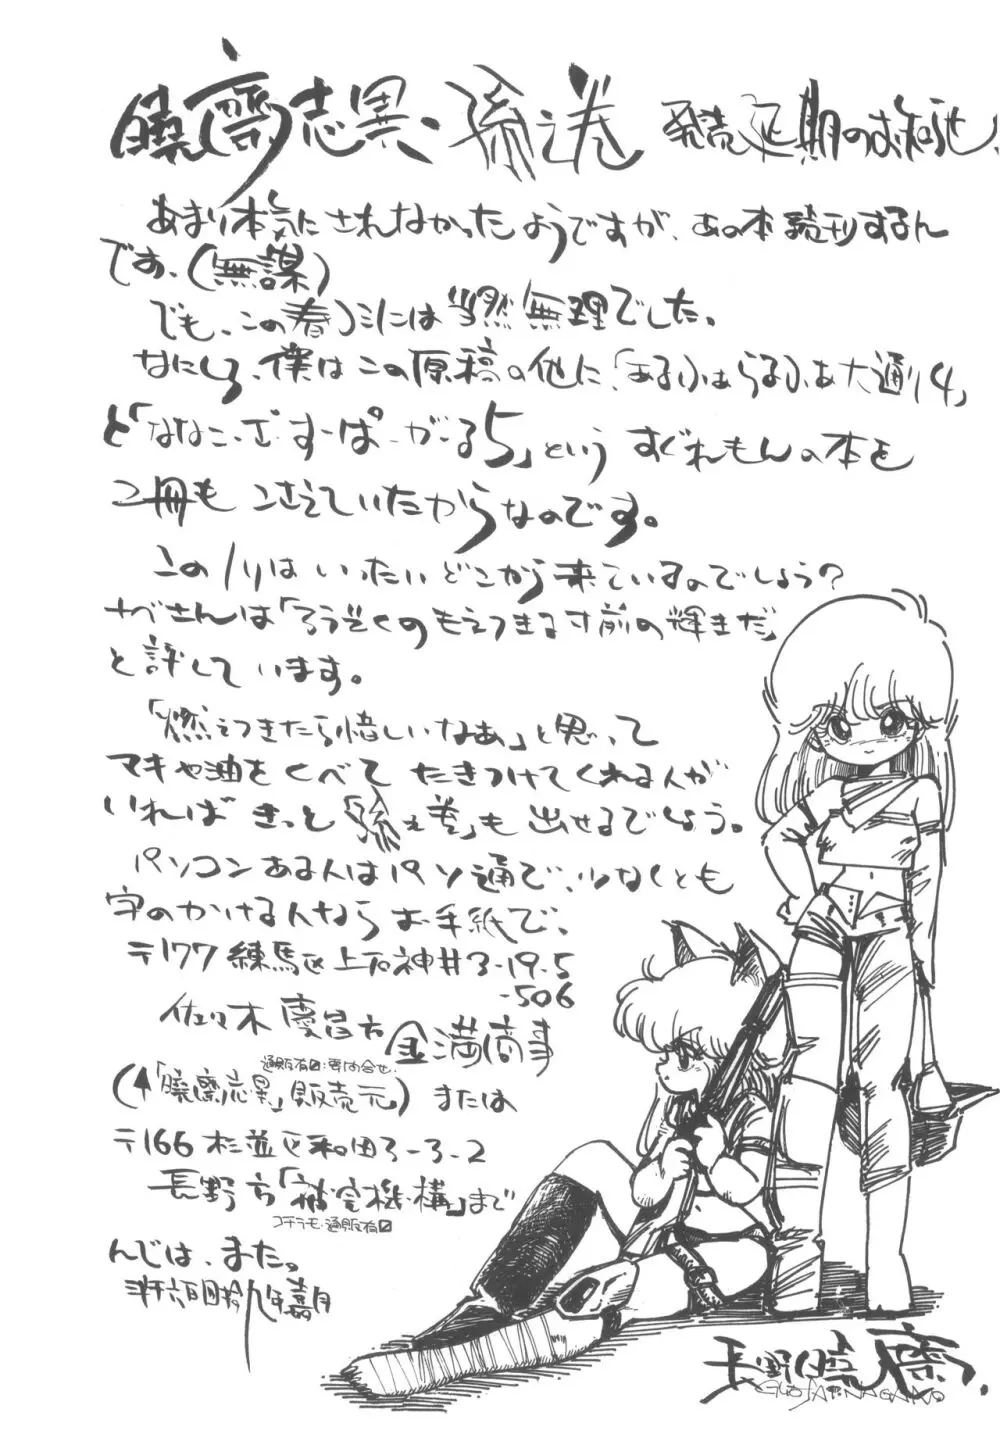 曉齊志異・孫之巻 発売延期のお知らせ!
あまり本気にされなかったようですが、あの本続刊するん
です、(無謀)
でも、この春コミには当然無理でした。
なにしろ、僕はこの原稿の他に、「あるふぁらるふぁ大通り4」
と「ななこ・ざ・すーぱーがーる5」という すぐれもんの本を
2冊も こさえていたからなのです。
このノリは いったい どこから来ているのでしょう?
ナベさんは「ろうそくのもえつきる寸前の輝きだ」
と評しています。
「燃えつきたら惜しいなあ」と思って
マキや油をくべて たきつけてくれる人が
いれば きっと「孫之巻」も 出せるでしょう。
パソコンある人はパソ通で、少なくとも
字のかける人ならお手紙で、
〒177 練馬区上石神井3-19-5
-506
佐々木 慶昌方 金満商事
通販有□:要問合せ.
(↑「曉齊志異」販売元) または
〒166 杉並区和田3-3-2
長野方 機構」まで
コチラも通販有□
んでは、また。
弐千六百四拾九年嘉月
長野曉齊.
GYOSAI NAGANO